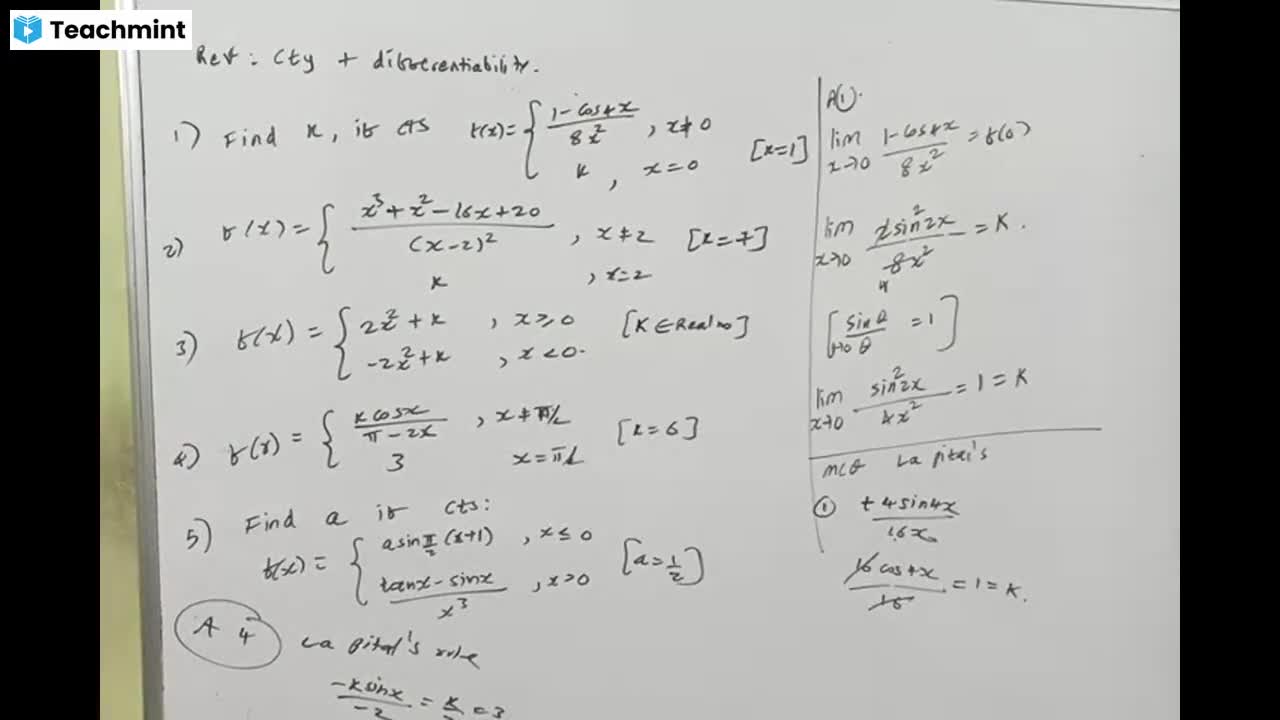 Teachmint
Rev: Cty + differentiability.
1) Find k, if cts f(x) = { 1-cos4x / 8x² , x≠0
k , x=0 [k=1]
2) f(x) = { x³+x²-16x+20 / (x-2)² , x≠2 [k=7]
k , x=2
3) f(x) = { 2x²+k , x≥0 [K∈Real no]
-2x²+k , x<0.
4) f(x) = { k cosx / π-2x , x≠π/2 [k=6]
3 x=π/2
5) Find a if cts:
f(x) = { a sin π/2 (x+1) , x≤0 [a=1/2]
tanx-sinx / x³ , x>0
A 4 La pital's rule
-k sinx / -2 = k/2 = 3
A(1).
lim x→0 1-cos4x / 8x² = f(0)
lim x→0 2sin²2x / 8x² = K.
4
[ sinθ / θ = 1 ]
θ→0
lim x→0 sin²2x / 4x² = 1 = K
MCQ La pital's
① + 4sin4x / 16x
16cos4x / 16 = 1 = K.